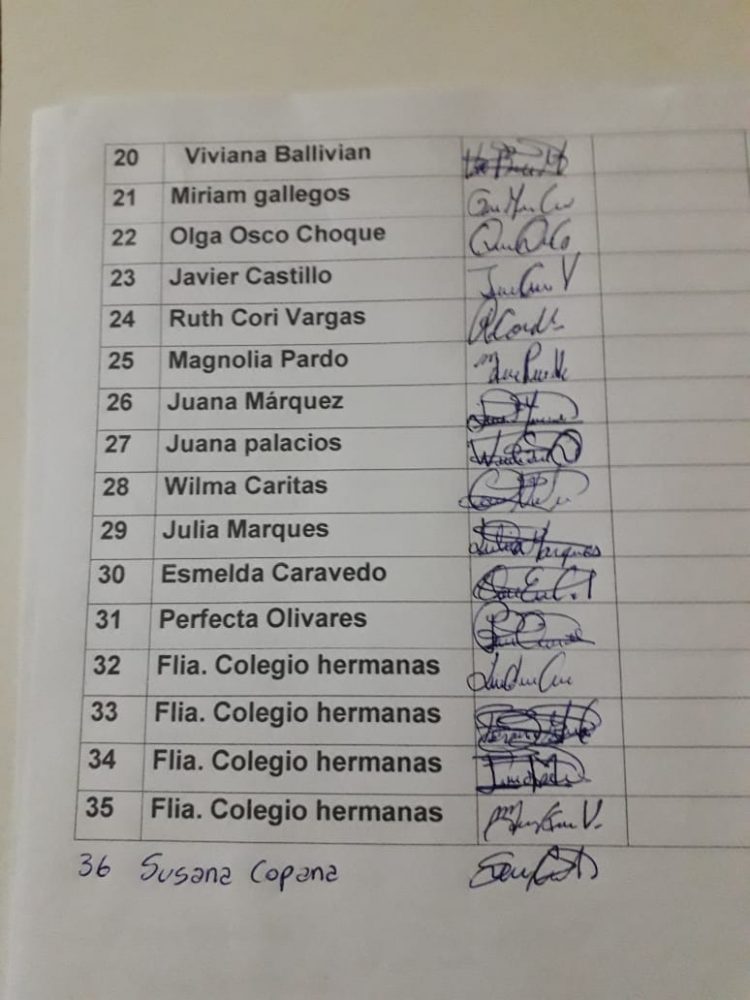 20 Viviana Ballivian
21 Miriam gallegos
22 Olga Osco Choque
23 Javier Castillo
24 Ruth Cori Vargas
25 Magnolia Pardo
26 Juana Márquez
27 Juana palacios
28 Wilma Caritas
29 Julia Marques Julia Marques
30 Esmelda Caravedo
31 Perfecta Olivares
32 Flia. Colegio hermanas
33 Flia. Colegio hermanas
34 Flia. Colegio hermanas
35 Flia. Colegio hermanas
36 Susana Copana